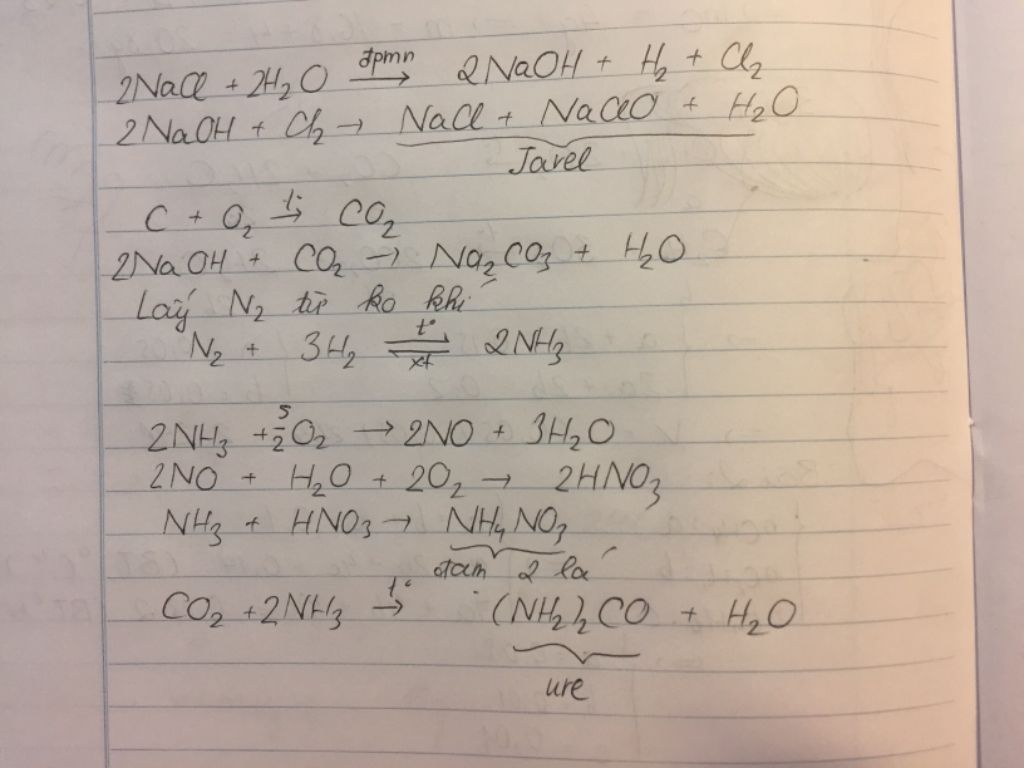 2NaCl + 2H₂O →(đpmn) 2NaOH + H₂ + Cl₂
2NaOH + Cl₂ → NaCl + NaClO + H₂O
Javel
C + O₂ →(t°) CO₂
2NaOH + CO₂ → Na₂CO₃ + H₂O
Lấy N₂ từ ko khí
N₂ + 3H₂ ⇌(t°, xt) 2NH₃
2NH₃ + 5/2 O₂ → 2NO + 3H₂O
2NO + H₂O + 2O₂ → 2HNO₃
NH₃ + HNO₃ → NH₄NO₃
đạm 2 lá
CO₂ + 2NH₃ →(t°) (NH₂)₂CO + H₂O
ure